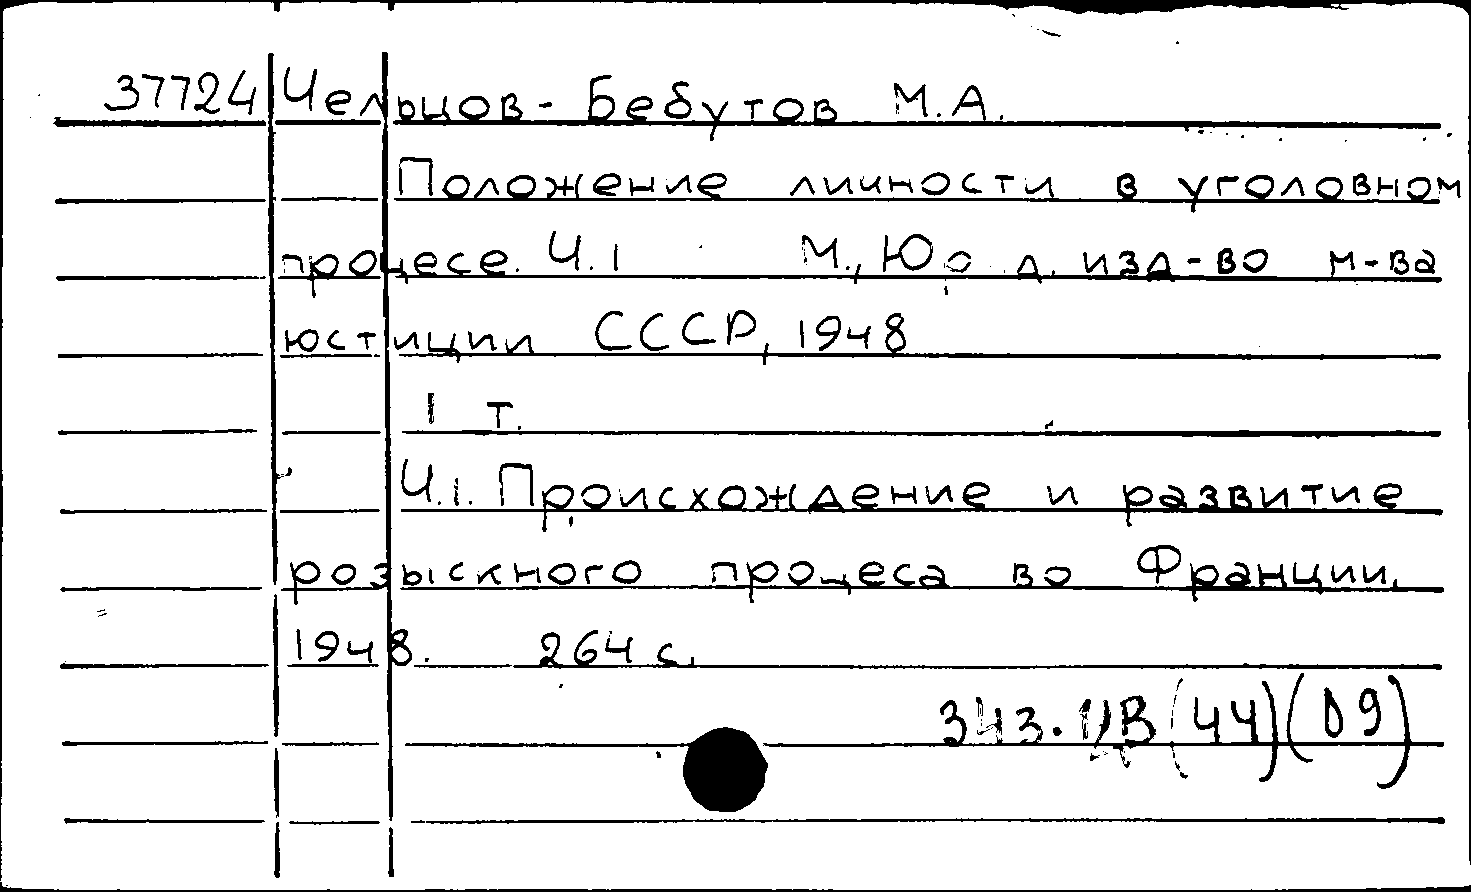 37724 Чельцов-Бебутов М.А.
Положение личности в уголовном
процесе. Ч.1 М., Юр. д. изд-во м-ва
юстиции СССР, 1948
1 т.
Ч.1. Происхождение и развитие
розыскного процеса во Франции.
1948. 264 с.
(44)(09)